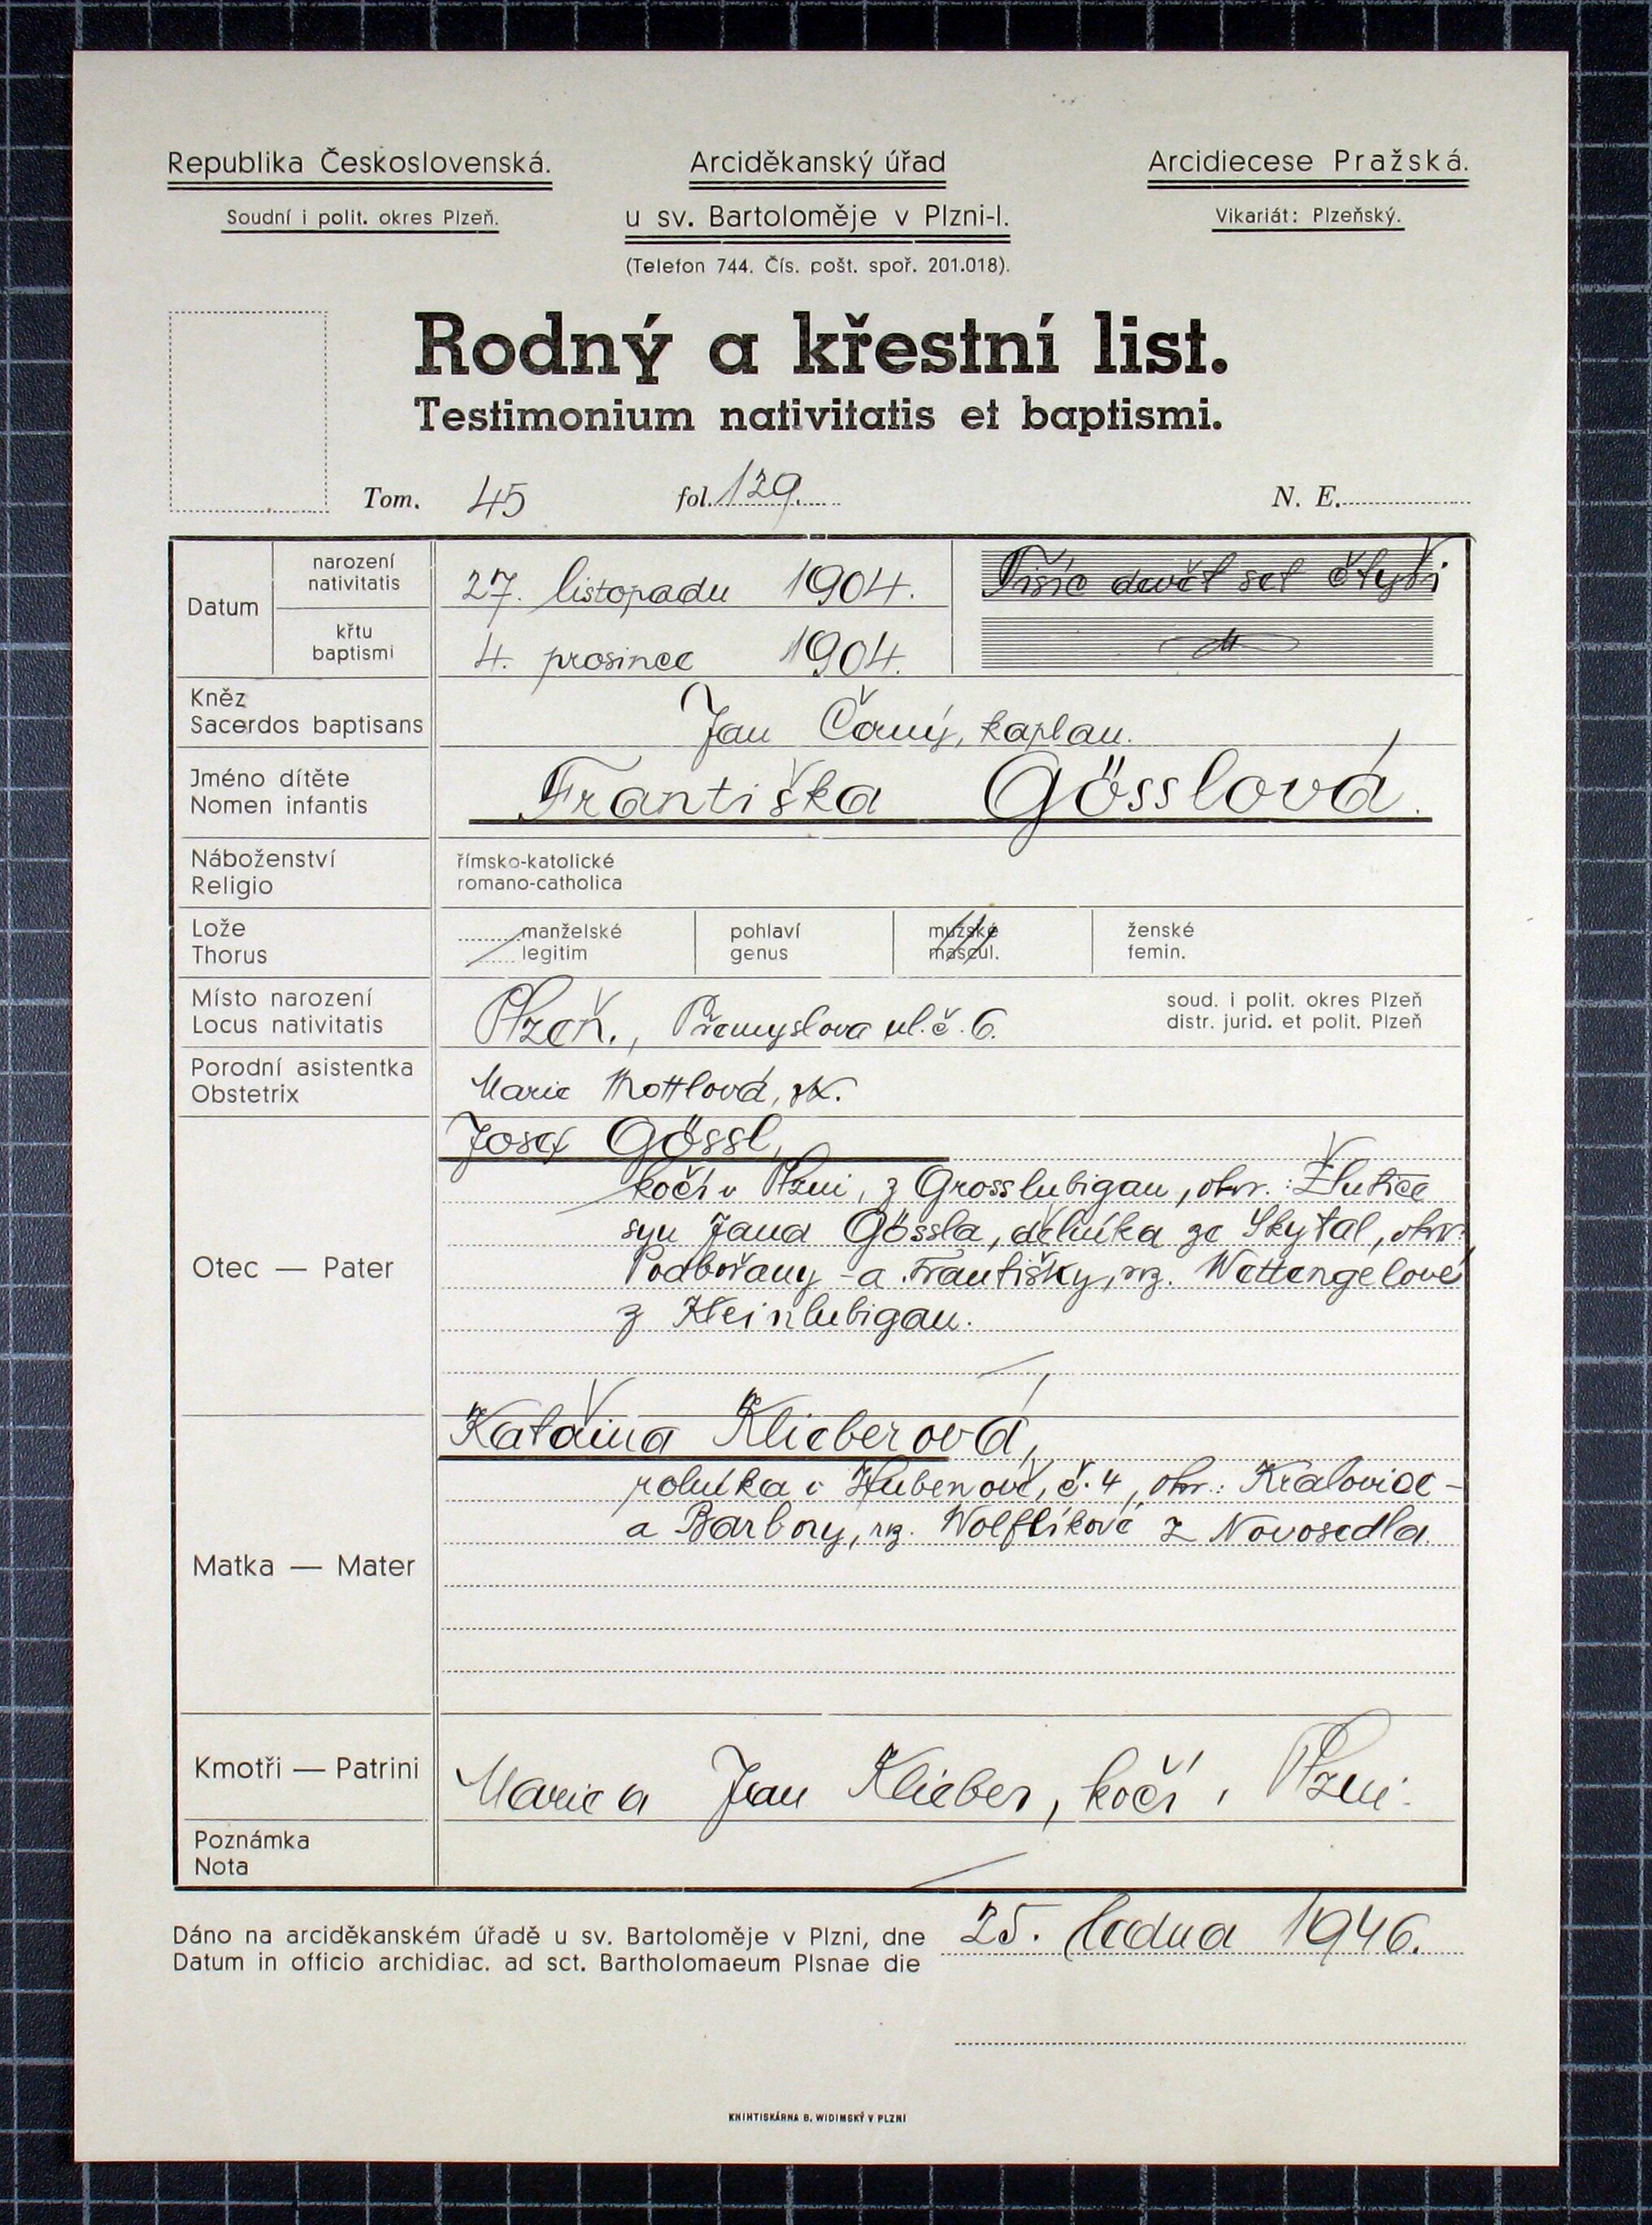 Republika Československá.
Soudní i polit. okres Plzeň.
Arciděkanský úřad
u sv. Bartoloměje v Plzni-I.
(Telefon 744. Čís. pošt. spoř. 201.018).
Arcidiecese Pražská.
Vikariát: Plzeňský.
Rodný a křestní list.
Testimonium nativitatis et baptismi.
Tom. 45 fol. 129. N. E.
Datum
narození
nativitatis
27. listopadu 1904.
Tisíc devět set čtyři
křtu
baptismi
4. prosince 1904.
Kněz
Sacerdos baptisans
Jan Černý, kaplan.
Jméno dítěte
Nomen infantis
Františka Gösslová.
Náboženství
Religio
římsko-katolické
romano-catholica
Lože
Thorus
manželské
legitim
pohlaví
genus
mužské
mascul.
ženské
femin.
Místo narození
Locus nativitatis
Plzeň, Přemyslova ul. č. 6.
soud. i polit. okres Plzeň
distr. jurid. et polit. Plzeň
Porodní asistentka
Obstetrix
Marie Mottlová, zk.
Otec — Pater
Josef Gössl,
kočí v Plzni, z Grosslubigau, okr.: Žlutice
syn Jana Gössla, dělníka ze Skytal, okr.
Podbořany - a Františky, roz. Wettengelové
z Kleinlubigau.
Matka — Mater
Kateřina Klieberová,
rolníka v Hubenově, č. 4, okr.: Kralovice -
a Barbory, roz. Wolflíkové z Novosedla.
Kmotři — Patrini
Marie a Jan Klieber, kočí v Plzni.
Poznámka
Nota
Dáno na arciděkanském úřadě u sv. Bartoloměje v Plzni, dne
Datum in officio archidiac. ad sct. Bartholomaeum Plsnae die
25. ledna 1946.
KNIHTISKÁRNA B. WIDIMSKÝ V PLZNI